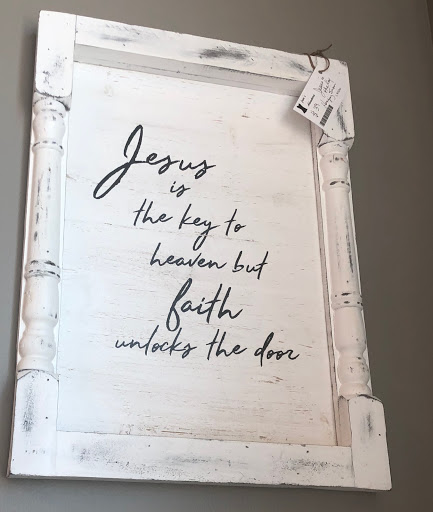 Jesus
is
the key to
heaven but
faith
unlocks the door